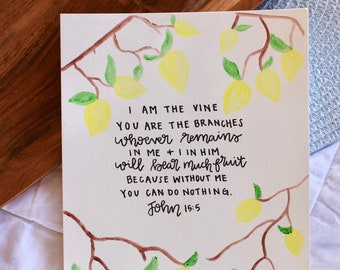 I AM THE VINE
YOU ARE THE BRANCHES
whoever remains
IN ME + I IN HIM
will bear much fruit
BECAUSE WITHOUT ME
YOU CAN DO NOTHING.
John 15:5